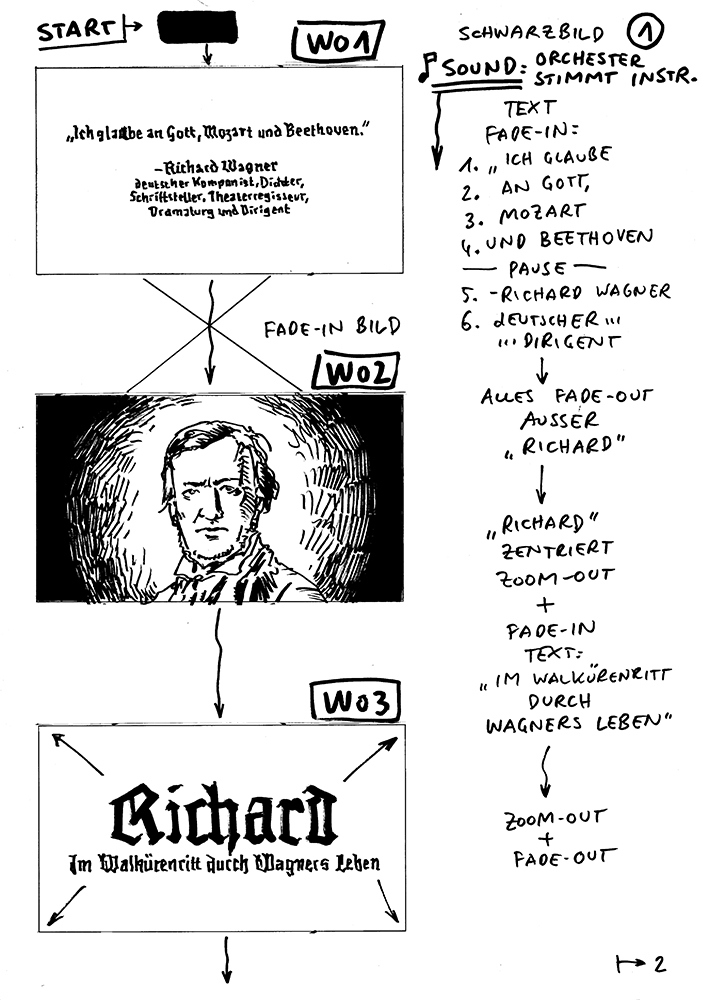 START
W01
SCHWARZBILD 1
SOUND: ORCHESTER
STIMMT INSTR.
„Ich glaube an Gott, Mozart und Beethoven.“
–Richard Wagner
deutscher Komponist, Dichter,
Schriftsteller, Theaterregisseur,
Dramaturg und Dirigent
TEXT
FADE-IN:
1. „ICH GLAUBE
2. AN GOTT,
3. MOZART
4. UND BEETHOVEN
— PAUSE —
5. -RICHARD WAGNER
6. DEUTSCHER ...
... DIRIGENT
FADE-IN BILD
W02
ALLES FADE-OUT
AUSSER
„RICHARD“
„RICHARD“
ZENTRIERT
ZOOM-OUT
+
FADE-IN
TEXT:
„IM WALKÜRENRITT
DURCH
WAGNERS LEBEN“
W03
Richard
Im Walkürenritt durch Wagners Leben
ZOOM-OUT
+
FADE-OUT
2